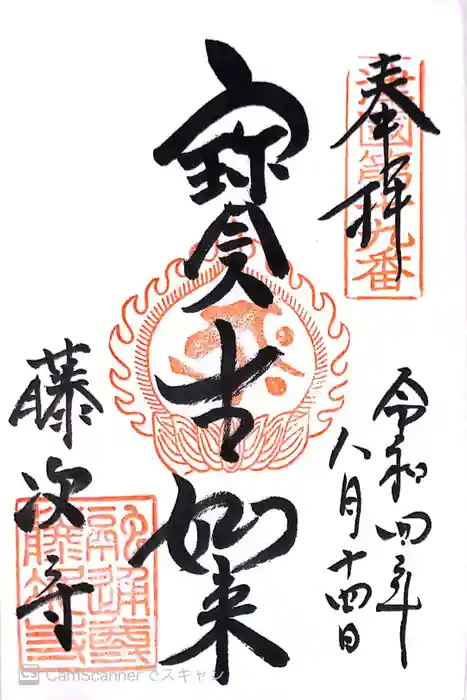 奉拝
令和四年
八月十四日
寶生如来
藤次寺
融通尊
藤次寺
CamScanner でスキャン